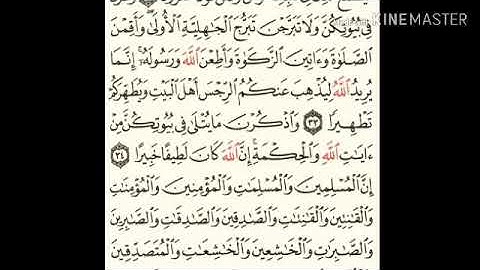 KINEMASTER
فِى بُيُوتِكُنَّ وَلَا تَبَرَّجْنَ تَبَرُّجَ ٱلْجَٰهِلِيَّةِ ٱلْأُولَىٰ وَأَقِمْنَ
ٱلصَّلَوٰةَ وَءَاتِينَ ٱلزَّكَوٰةَ وَأَطِعْنَ ٱللَّهَ وَرَسُولَهُۥٓ إِنَّمَا
يُرِيدُ ٱللَّهُ لِيُذْهِبَ عَنكُمُ ٱلرِّجْسَ أَهْلَ ٱلْبَيْتِ وَيُطَهِّرَكُمْ
تَطْهِيرًا ٣٣ وَٱذْكُرْنَ مَا يُتْلَىٰ فِى بُيُوتِكُنَّ مِنْ
ءَايَٰتِ ٱللَّهِ وَٱلْحِكْمَةِ إِنَّ ٱللَّهَ كَانَ لَطِيفًا خَبِيرًا ٣٤
إِنَّ ٱلْمُسْلِمِينَ وَٱلْمُسْلِمَٰتِ وَٱلْمُؤْمِنِينَ وَٱلْمُؤْمِنَٰتِ
وَٱلْقَٰنِتِينَ وَٱلْقَٰنِتَٰتِ وَٱلصَّٰدِقِينَ وَٱلصَّٰدِقَٰتِ وَٱلصَّٰبِرِينَ
وَٱلصَّٰبِرَٰتِ وَٱلْخَٰشِعِينَ وَٱلْخَٰشِعَٰتِ وَٱلْمُتَصَدِّقِينَ